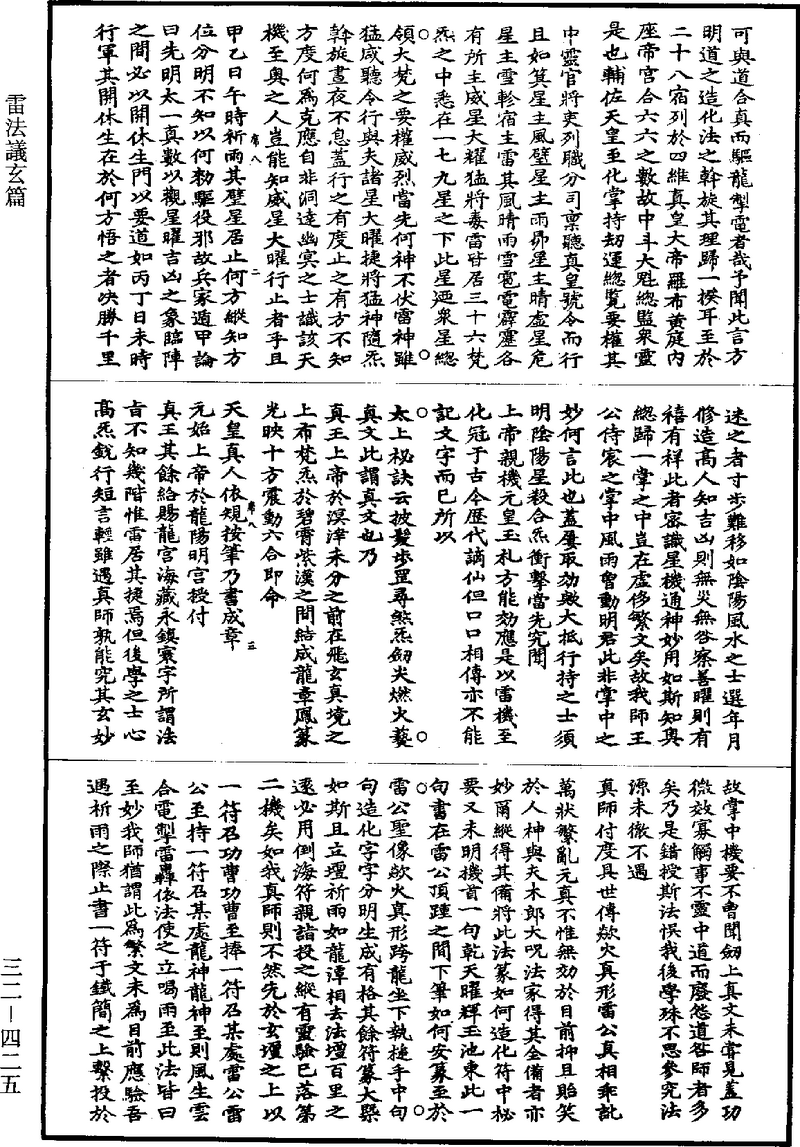 雷法議玄篇
可與道合真而驅龍掣電者哉予聞此言方
明道之造化法之斡旋其理歸一揆耳至於
二十八宿列於四維真皇大帝羅布黃庭內
座帝宮合六六之數故中斗大魁總監眾靈
是也輔佐天皇至化掌持劫運總覽要權其
中靈官將吏列職分司稟聽真皇號令而行
且如箕星主風壁星主雨昴星主晴虛星危
星主雪軫宿主雷其風晴雨雪雹電霹靂各
有所主威星大耀猛將毒雷皆居三十六梵
炁之中悉在一七九星之下此星迺眾星總
領大梵之要權威烈當先何神不伏雷神雖
猛咸聽令行與夫諸星大曜捷將猛神隨炁
斡旋晝夜不息蓋行之有度止之有方不知
方度何為克應自非洞達幽冥之士識該天
機至奧之人豈能知威星大曜行止者乎且
席八 二
甲乙日午時祈雨其壁星居止何方縱知方
位分明不知以何勑驅役邪故兵家遁甲論
曰先明太一真數以觀星曜吉凶之象臨陣
之間必以開休生門以要道如丙丁日未時
行軍其開休生在於何方悟之者決勝千里
迷之者寸步難移如陰陽風水之士選年月
修造高人知吉凶則無災無咎察善曜則有
禧有祥此者審識星機通神妙用如斯知奧
總歸一掌之中豈在虛侈繁文矣故我師王
公侍宸之掌中風雨曾動明君此非掌中之
妙何言此也蓋屢取効歟大抵行持之士須
明陰陽星殺合炁衝擊當先究聞
上帝親機元皇玉札方能効應是以雷機至
化冠于古今歷代謫仙但口口相傳亦不能
記文字而已所以
太上祕訣云披髮步罡尋煞炁劒尖燃火藝
真文此謂真文也乃
真王上帝於溟涬未分之前在飛玄真境之
上布梵炁於碧霄紫漢之間結成龍章鳳篆
光映十方震動六合即命
席八 三
天皇真人依規按筆乃書成章
元始上帝於龍陽明宮授付
真王其餘給賜龍宮海藏永鎮寰宇所謂法
言不知幾階惟雷居其捷焉但後學之士心
高炁銳行短言輕雖遇真師孰能究其玄妙
故掌中機要不曾聞劒上真文未嘗見蓋功
微效寡觸事不靈中道而廢怨道咎師者多
矣乃是錯授斯法悞我後學殊不思參究法
源未徹不遇
真師付度具世傳歘火真形雷公真相乖訛
萬狀繁亂元真不惟無効於目前抑且貽笑
於人神與夫木郎大呪法家得其全備者亦
妙爾縱得其備將此法篆如何造化符中祕
要又未明機首一句乾天曜輝玉池東此一
句書在雷公頂踵之間下筆如何安篆至於
雷公聖像歘火真形跨龍坐下執捷手中句
句造化字字分明生成有格其餘符篆大槩
如斯且立壇祈雨如龍潭相去法壇百里之
遠必用倒海符親詣投之縱有靈驗已落第
二機矣如我真師則不然先於玄壇之上以
一符召功曹功曹至捧一符召某處雷公雷
公至持一符召某處龍神龍神至則風生雲
合電掣雷轟依法使之立喝雨至此法皆曰
至妙我師猶謂此為繁文未為目前應驗吾
遇祈雨之際止書一符于鐵簡之上繫投於
三二—四二五